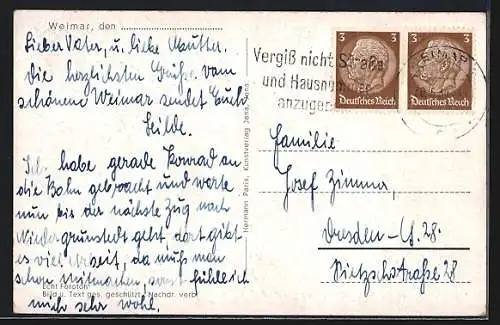 Weimar, den
Lieber Vater, u. liebe Mutter.
Die herzlichsten Grüße vom
schönen Weimar sendet Euch
Hilde.
Ich habe gerade Konrad an
die Bahn gebracht und warte
nun bis der nächste Zug nach
Niedergrunstedt geht, dort gibt
es viel Arbeit, da muß man
schon mitmachen, sonst fühle ich
mich sehr wohl.
Echt Foto
Bild u. Text ges. geschützt, Nachdr. verb.
Hermann Paris, Kunstverlag Jena
Vergiß nicht Straße
und Hausnummer
anzugeben
3 3
Deutsches Reich
3 3
Deutsches Reich
Familie
Josef Zimmer,
Dresden-A. 28.
Nietzschstraße 28